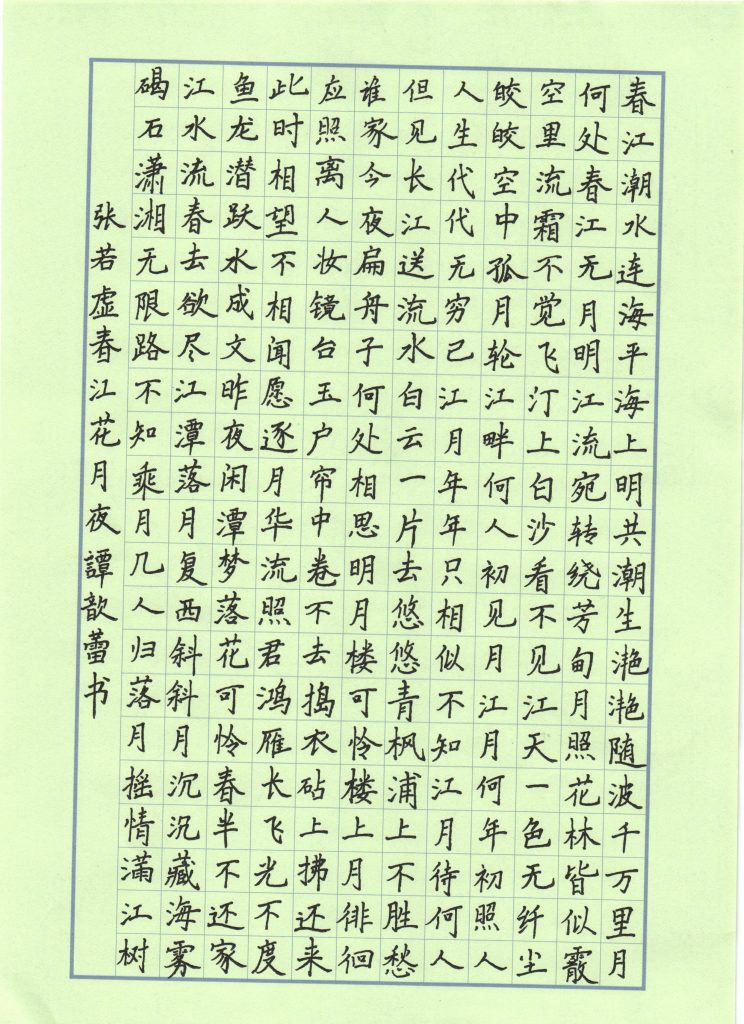 春江潮水连海平海上明共潮生滟滟随波千万里月
何处春江无月明江流宛转绕芳甸月照花林皆似霰
空里流霜不觉飞汀上白沙看不见江天一色无纤尘
皎皎空中孤月轮江畔何人初见月江月何年初照人
人生代代无穷已江月年年只相似不知江月待何人
但见长江送流水白云一片去悠悠青枫浦上不胜愁
谁家今夜扁舟子何处相思明月楼可怜楼上月徘徊
应照离人妆镜台玉户帘中卷不去捣衣砧上拂还来
此时相望不相闻愿逐月华流照君鸿雁长飞光不度
鱼龙潜跃水成文昨夜闲潭梦落花可怜春半不还家
江水流春去欲尽江潭落月复西斜斜月沉沉藏海雾
碣石潇湘无限路不知乘月几人归落月摇情满江树
张若虚春江花月夜譚歆蕾书